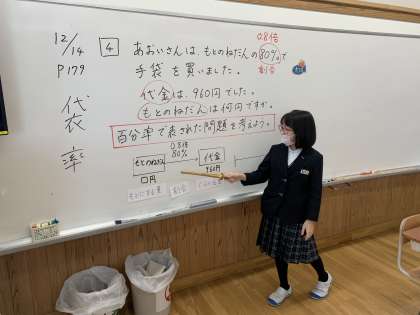 12/14
P179
代衣
率
4
0.8倍
あおいさんは、もとのねだんの80%で
割合
手袋を買いました。
代金は、960円でした。
もとのねだんは何円ですか。
百分率で表された問題を考えよう。
0.8倍
80%
もとのねだん
代金
□円
960円
もとにする量
割合